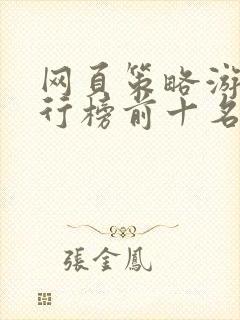 网页策略游
行榜前十名
張金鳳